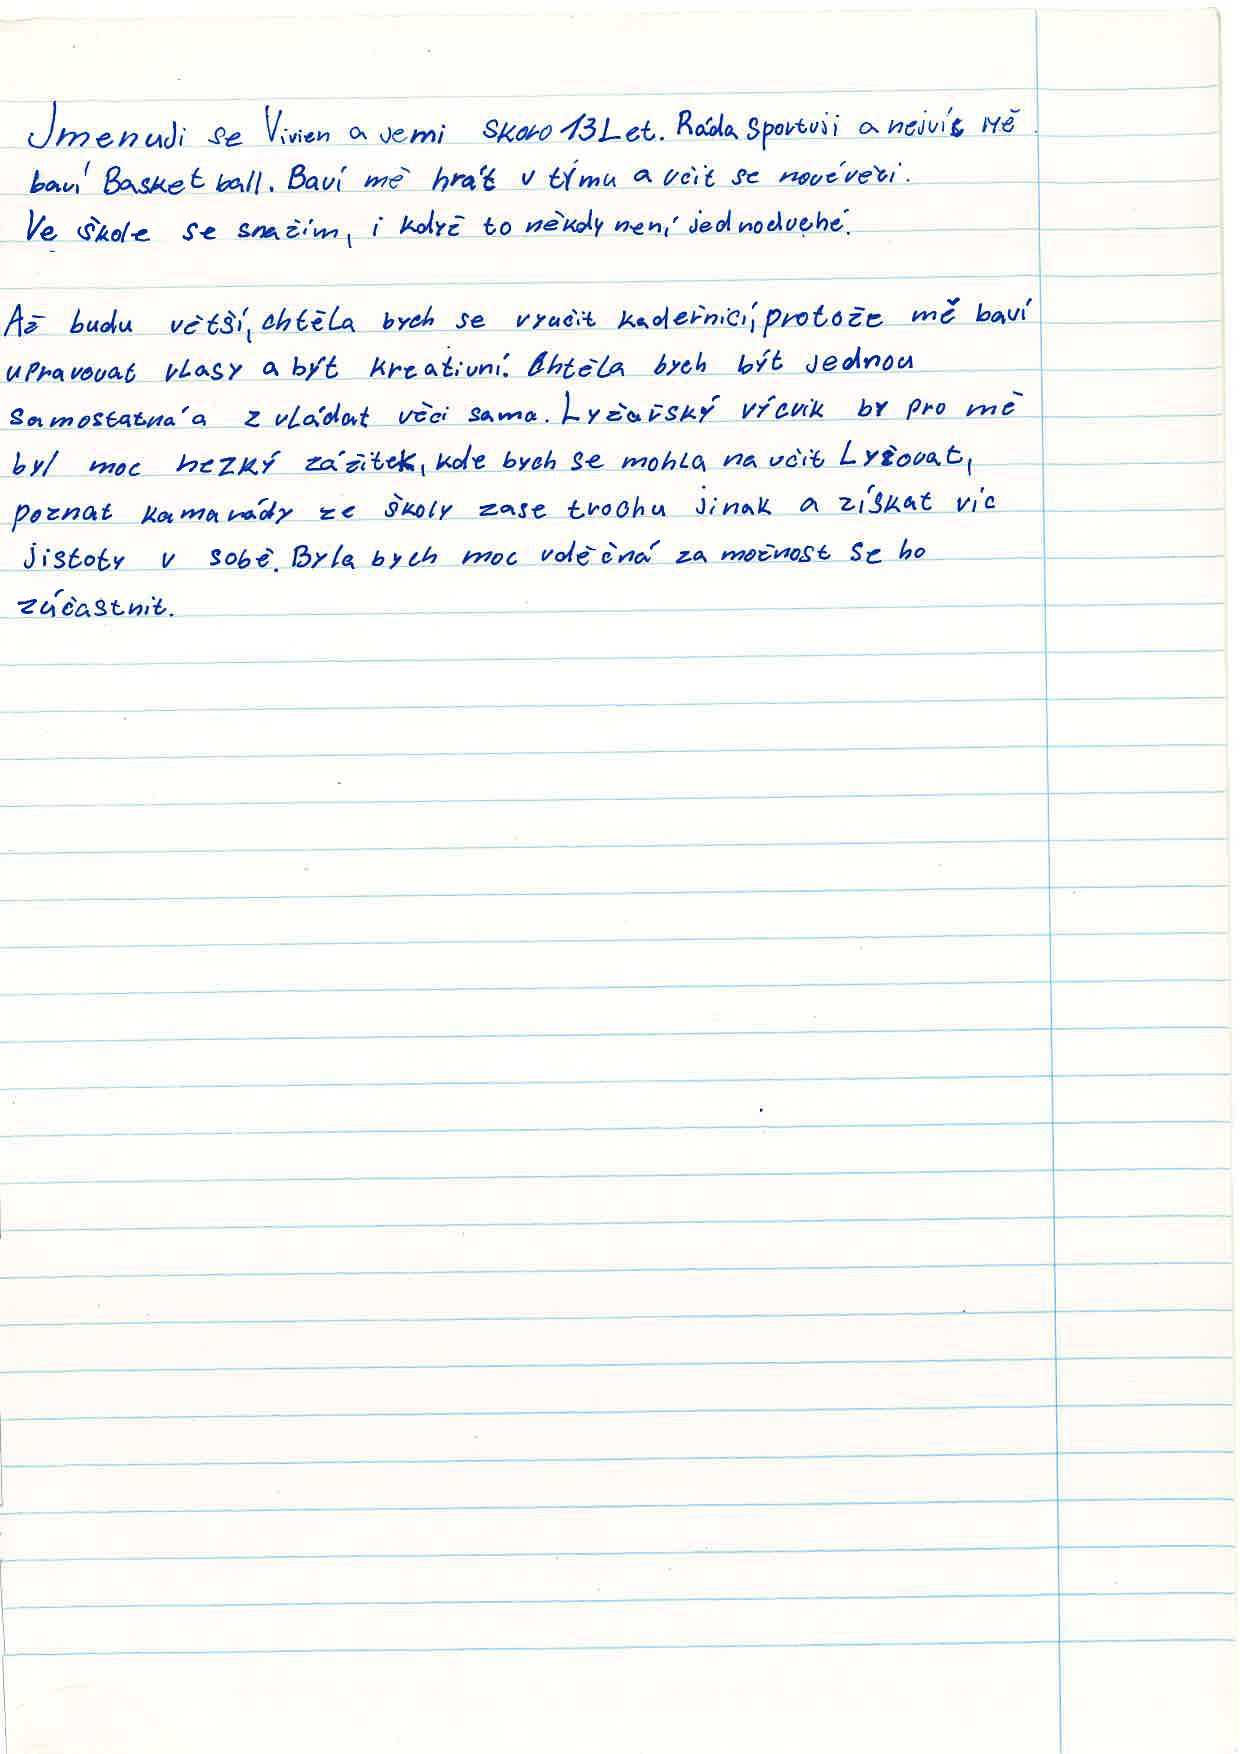 Jmenuji se Vivien a jemi skoro 13 Let. Ráda Sportuji a nejvíc mě
baví Basket ball. Baví mě hrát v týmu a učit se nové věci.
Ve škole se snažím, i když to někdy není jednoduché.
Až budu větší, chtěla bych se vyučit kadeřnicí, protože mě baví
upravovat vlasy a být kreativní. Chtěla bych být jednou
Samostatná a zvládat věci sama. Lyžařský výcvik by pro mě
byl moc hezký zážitek, kde bych se mohla naučit Lyžovat,
poznat kamarády ze školy zase trochu jinak a získat víc
jistoty v sobě. Byla bych moc vděčná za možnost se ho
zúčastnit.